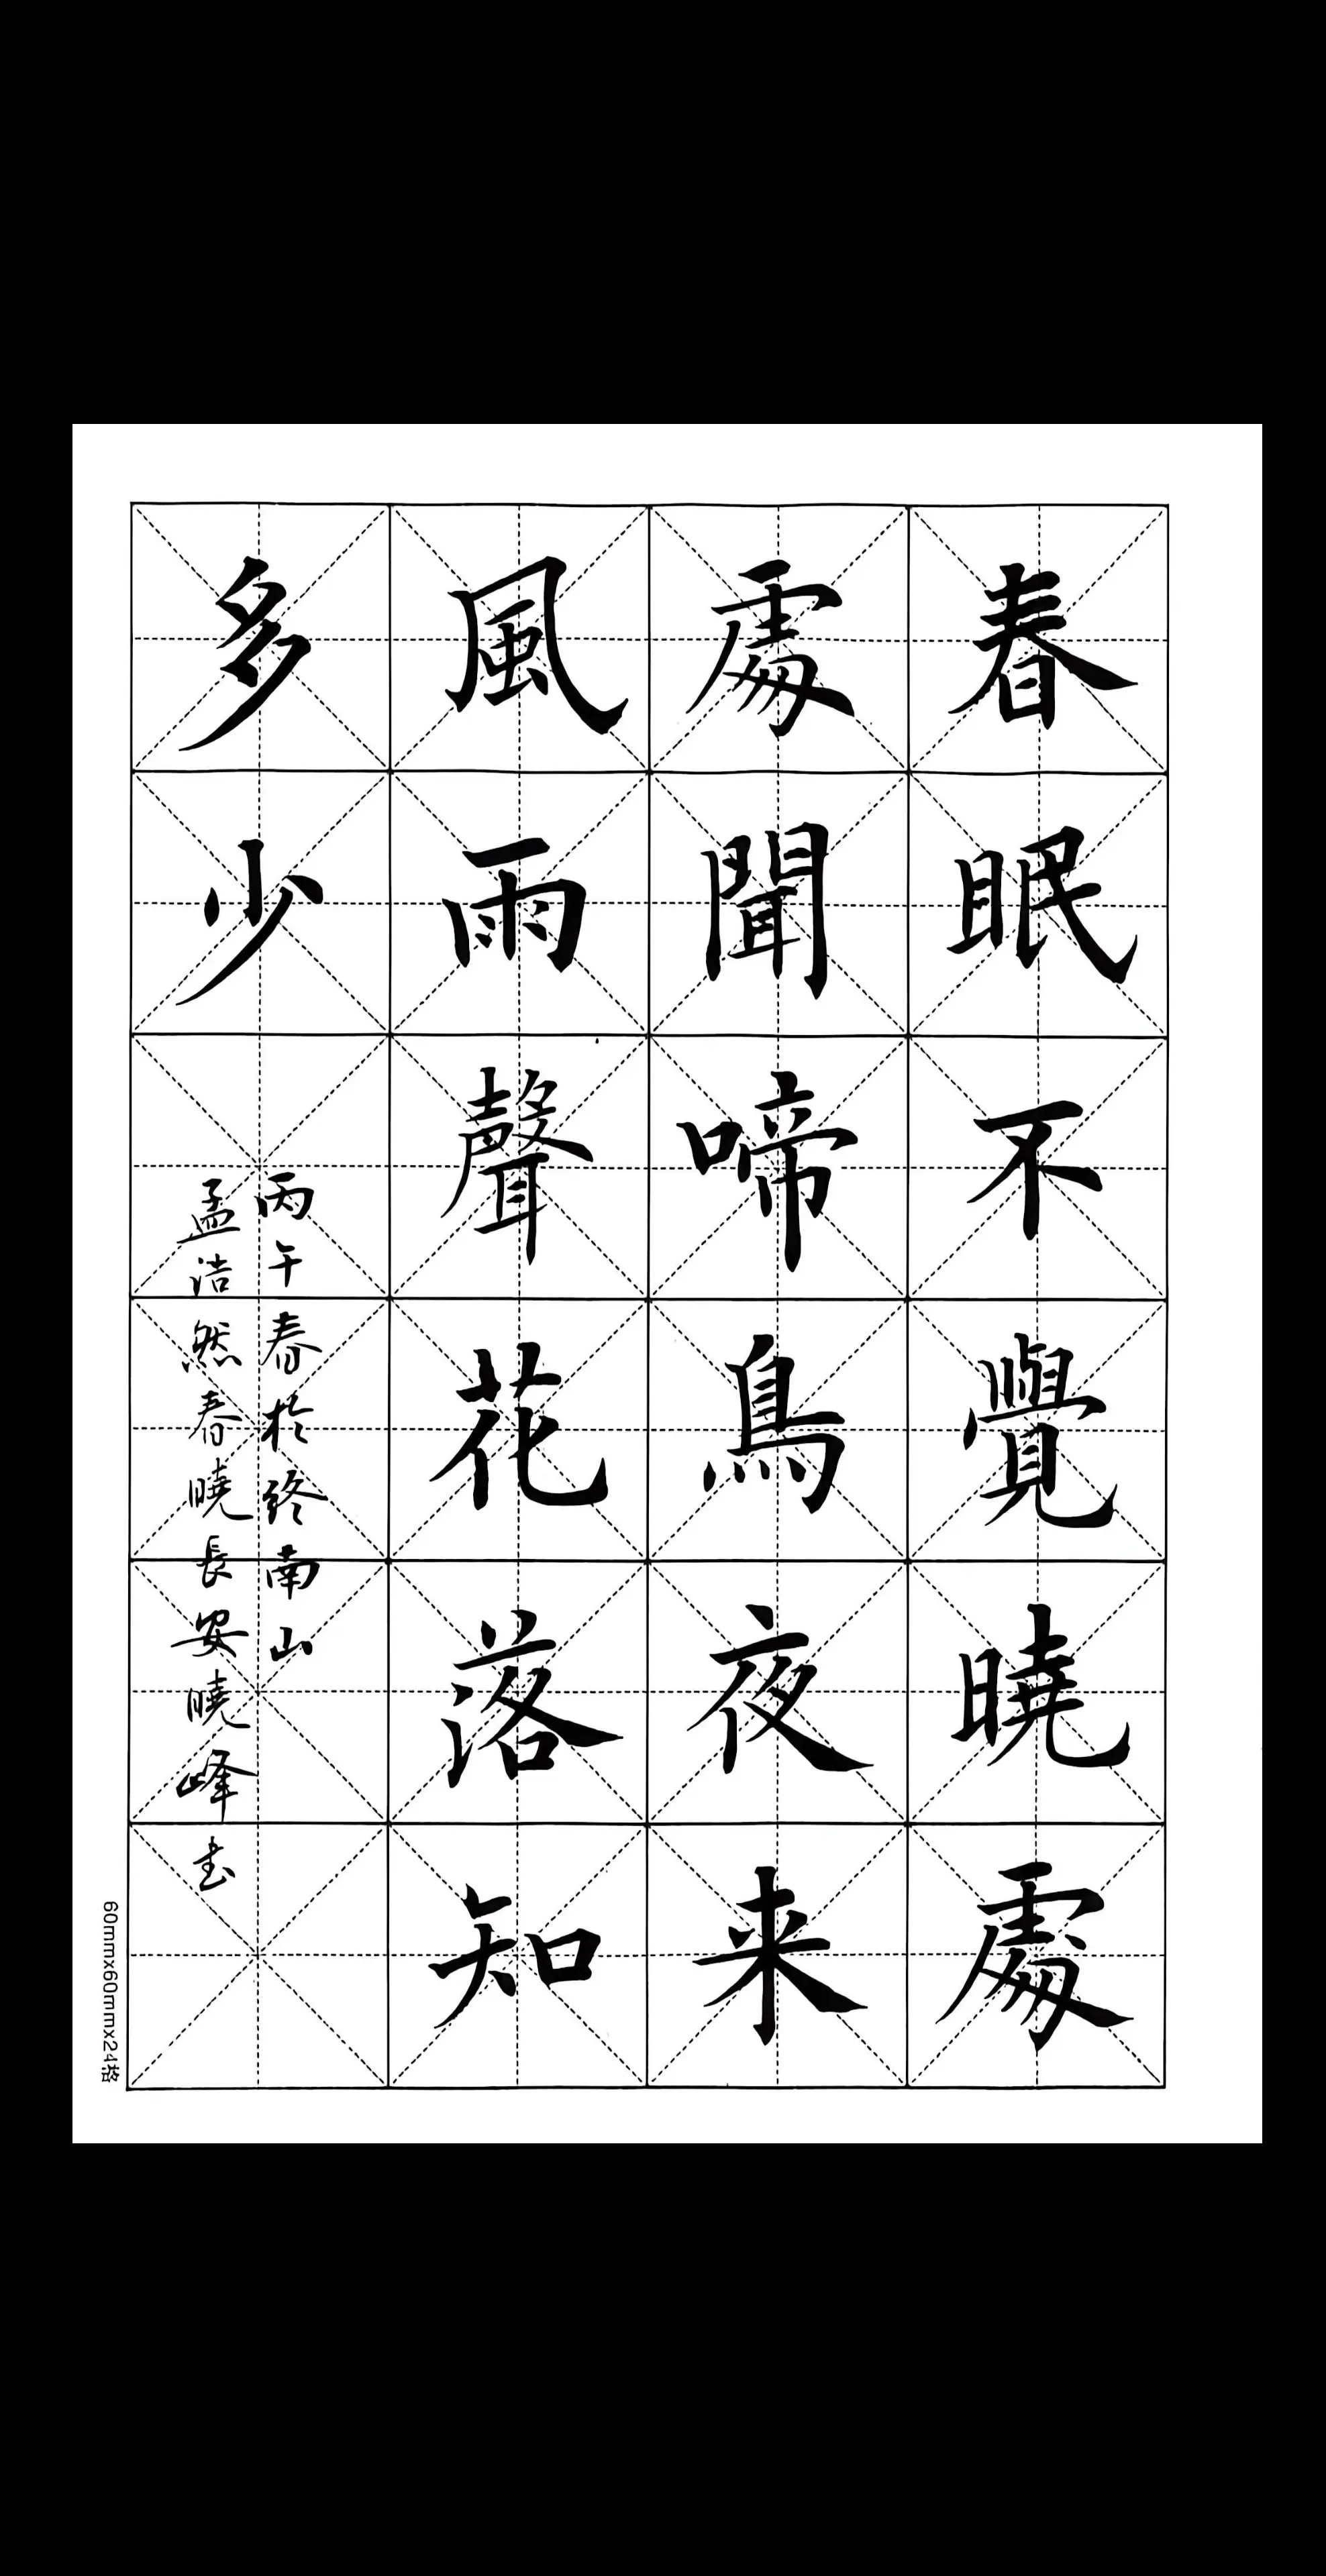 春眠不覺曉處
處聞啼鳥夜来
風雨聲花落知
多少
丙午春於终南山
孟浩然春曉長安曉峰书
60mmx60mmx24格